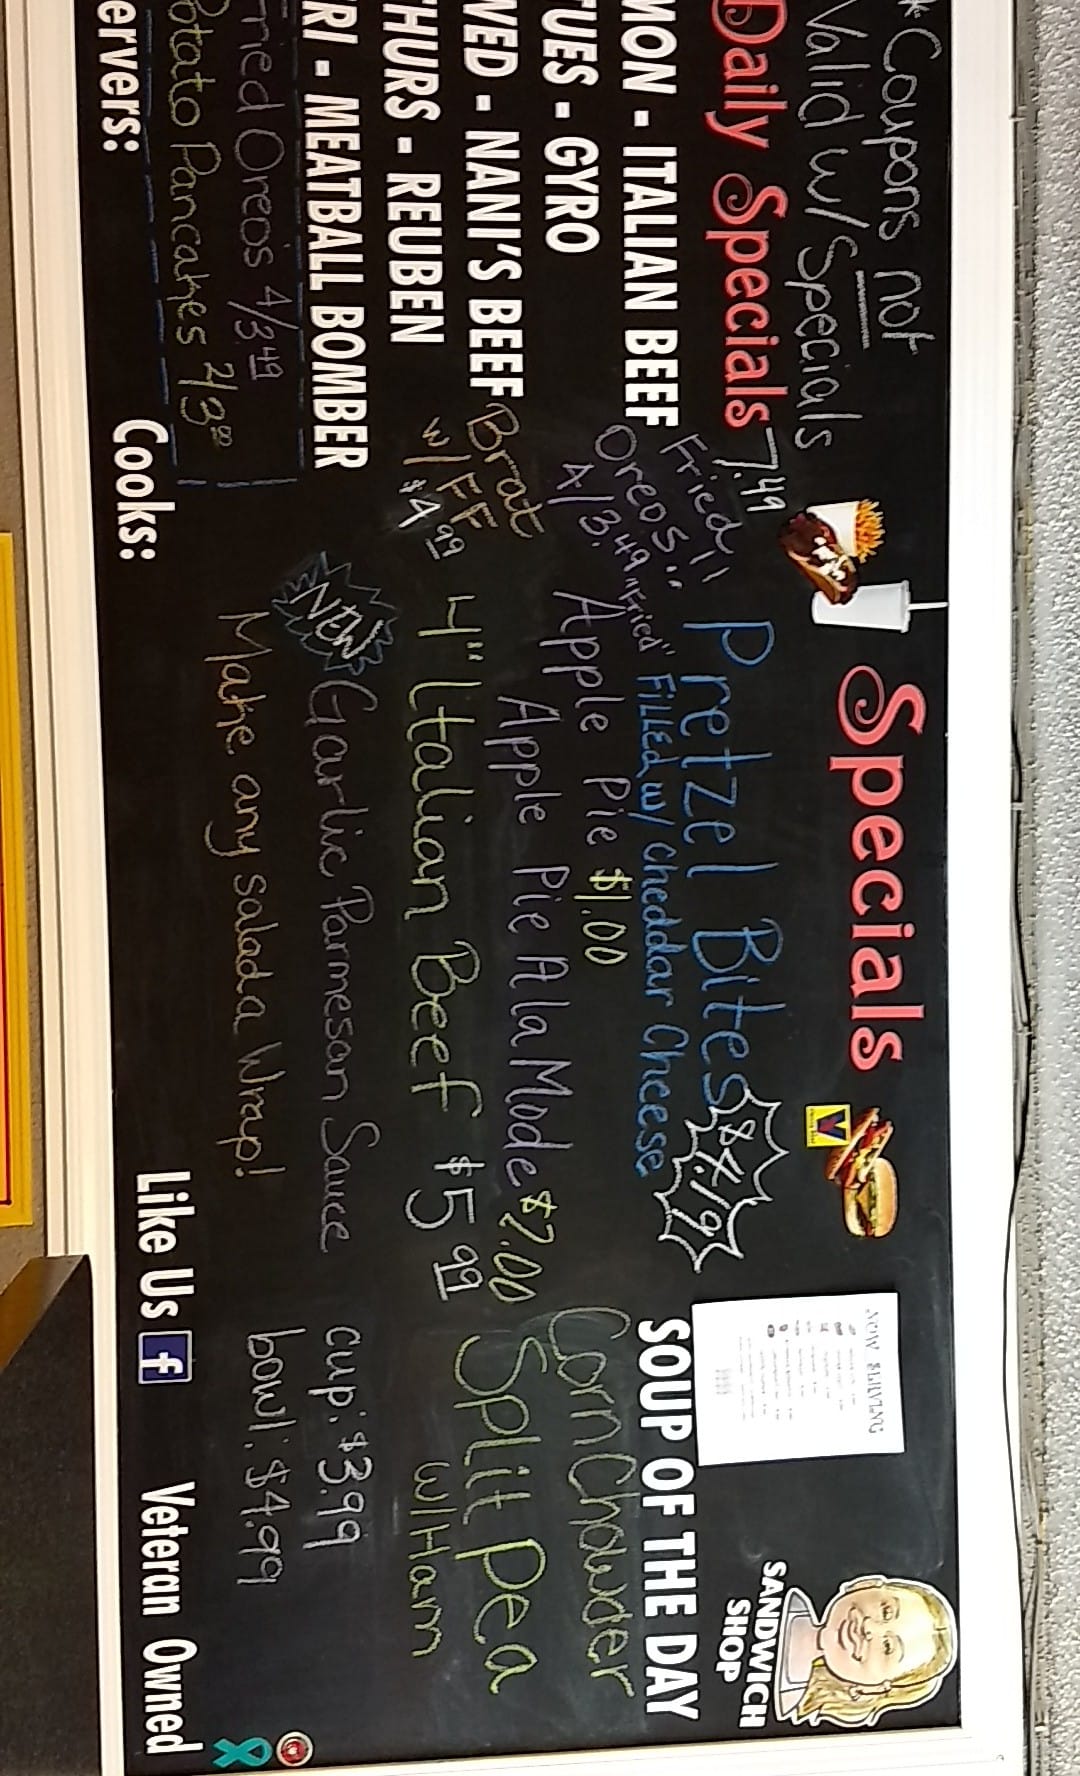 *Coupons not
Valid w/ Specials
Daily Specials 7.49
MON - ITALIAN BEEF
TUES - GYRO
WED - NANI'S BEEF
THURS - REUBEN
FRI - MEATBALL BOMBER
Fried Oreos 4/3.49
Potato Pancakes 2/3.00
ervers:
Cooks:
Fried!!
Oreos
4/3.49
Brat
w/ FF
$4.99
Specials
Pretzel Bites $4.19
"Fried" Filled w/ Cheddar Cheese
Apple Pie $1.00
Apple Pie A la Mode $2.00
4" Italian Beef $5.99
NEW Garlic Parmesan Sauce
Make any salad a Wrap!
Like Us f
NOW SERVING
SANDWICH
SHOP
SOUP OF THE DAY
Corn Chowder
Split Pea
w/ Ham
cup: $3.99
bowl: $4.99
Veteran Owned